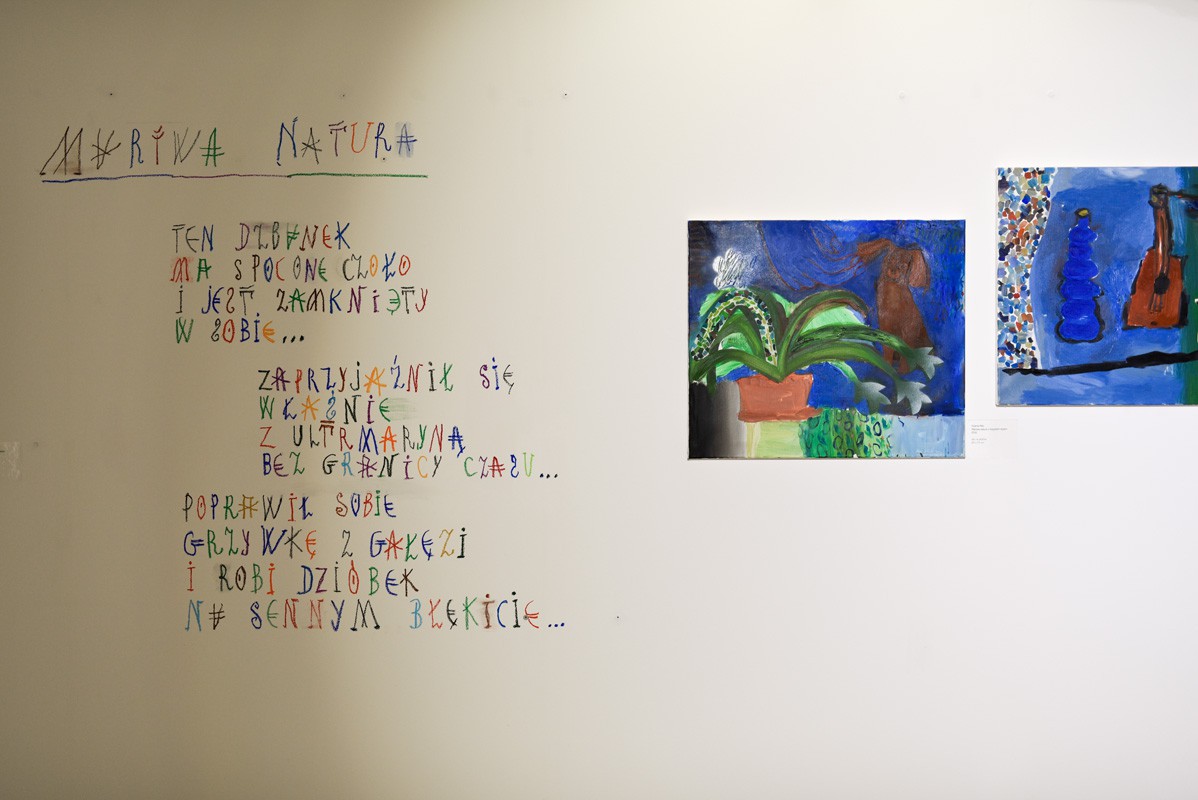 MARTWA NATURA
TEN DZBANEK
MA SPOCONE CZOŁO
I JEST ZAMKNIĘTY
W SOBIE...
ZAPRZYJAŹNIŁ SIĘ
WŁAŚNIE
Z ULTRMARYNĄ
BEZ GRANICY CZASU...
POPRAWIŁ SOBIE
GRZYWKĘ Z GAŁĘZI
I ROBI DZIÓBEK
NA SENNYM BŁĘKICIE...